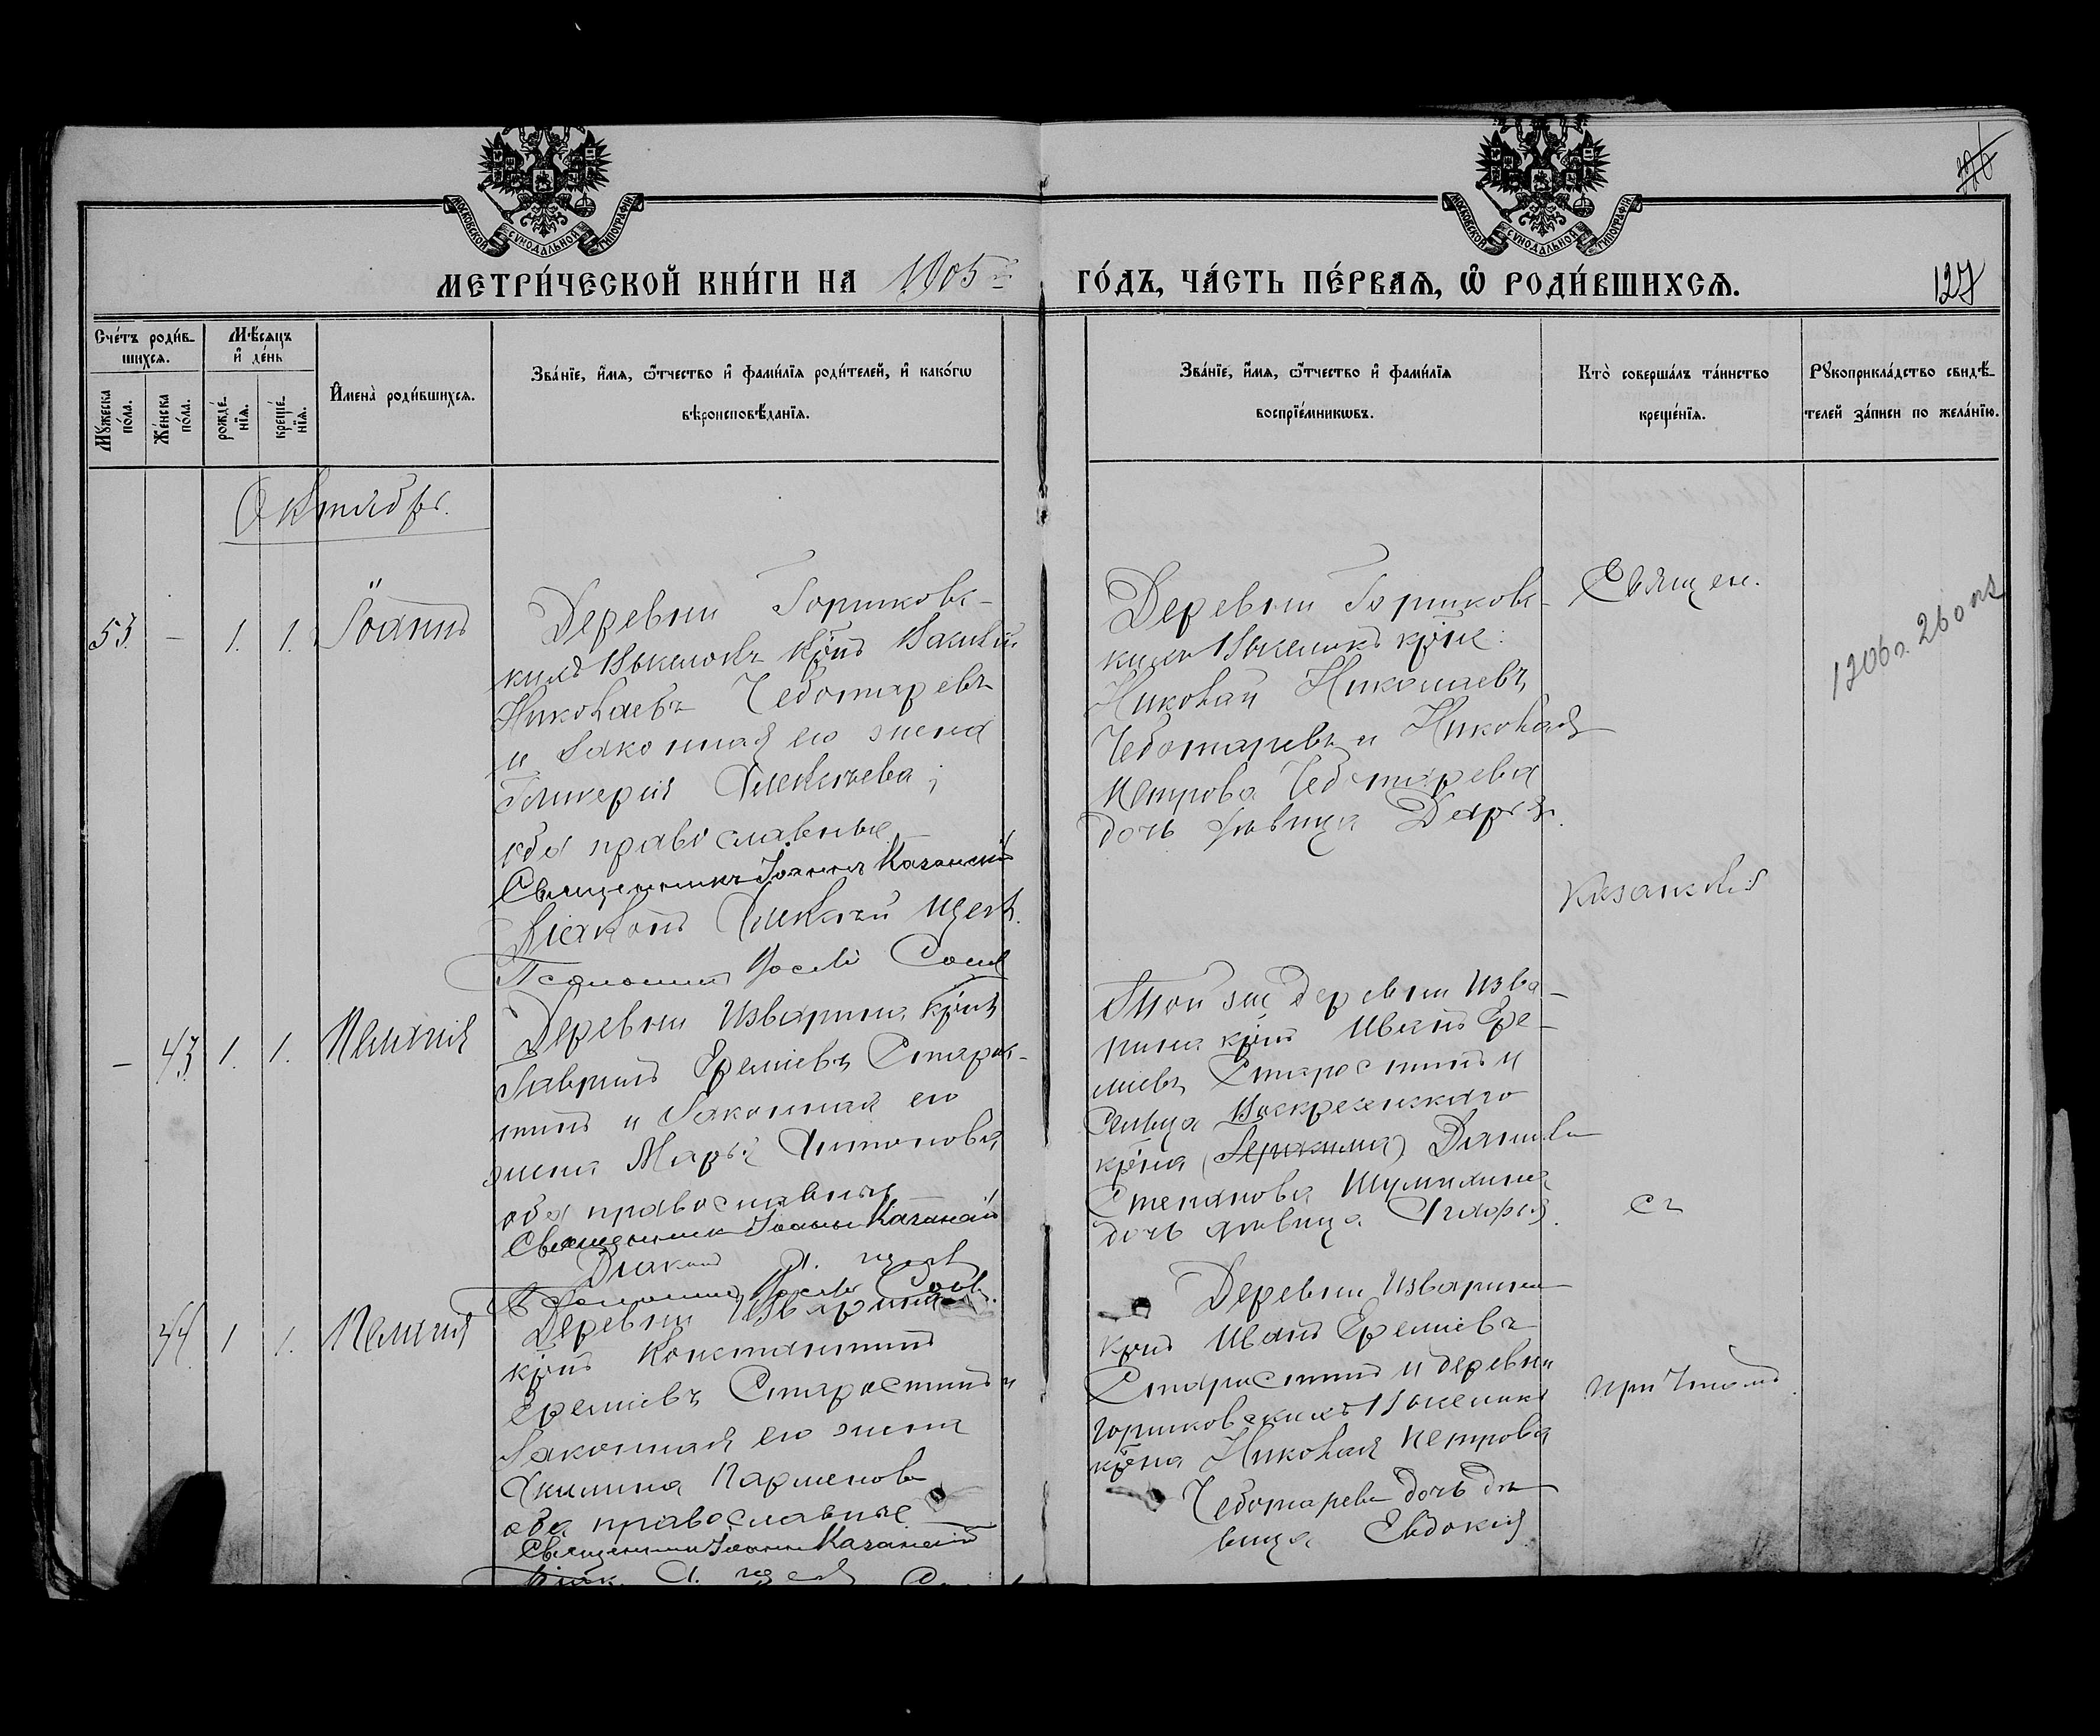 МОСКОВСКОЙ СУНОДАЛЬНОЙ ТИПОГРАФІИ
МОСКОВСКОЙ СУНОДАЛЬНОЙ ТИПОГРАФІИ
МЕТРИ́ЧЕСКОЙ КНИ́ГИ НА 1905 й ГО́ДЪ, ЧА́СТЬ ПЕ́РВАѦ, Ѡ҆ РОДИ́ВШИХСѦ.
127
Сче́тъ роди́в-
шихсѧ.
Мꙋжеска по́ла.
Же́нска по́ла.
Мѣ́сѧцъ и҆ де́нь
рожде́-
нїѧ.
креще́-
нїѧ.
И҆мена̀ роди́вшихсѧ.
Зва́нїе, и҆́мѧ, ѻ҆́тчество и҆ фами́лїѧ роди́телей, и҆ како́гѡ
вѣроисповѣ́данїѧ.
Зва́нїе, и҆́мѧ, ѻ҆́тчество и҆ фами́лїѧ
воспрїе́мникѡвъ.
Кто̀ соверша́лъ та́инство
креще́нїѧ.
Рꙋкоприкла́дство свидѣ́-
телей за́писи по жела́нїю.
Октябрь.
53 - 1. 1. Іоаннъ
Деревни Горшковс-
кихъ Выселокъ крнъ Василій
Николаевъ Чеботаревъ
и законная его жена
Гликерія Алексѣева;
оба православные
Священникъ Іоаннъ Казанскій
Діаконъ Алексѣй Щегл.
Псаломщ.
Деревни Горшковс-
кихъ Выселокъ крне:
Николай Николаевъ
Чеботаревъ и Николая
Петрова Чеботарева
дочь дѣвица Дарья.
Священ.
Казанскій
1906 г. 26
- 43 1. 1. Пелагія
Деревни Изварина крнъ
Гавріилъ Еремѣевъ Старос-
тинъ и законная его
жена Марья Антонова
оба православные
Священникъ Іоаннъ Казанскій
Діаконъ А. Щегл.
Той же деревни Изва-
рина крнъ Иванъ Ере-
мѣевъ Старостинъ и
сельца Воскресенскаго
крна Данила
Степанова Шумилина
дочь дѣвица Глафира.
съ
44 1 1. Пелагія
Деревни Изварина
крнъ Константинъ
Еремѣевъ Старостинъ и
законная его жена
Акилина Парменова
оба православные
Священникъ Іоаннъ Казанскій
Діак. А. Щегл
Деревни Изварина
крнъ Иванъ Еремѣевъ
Старостинъ и деревни
Горшковскихъ Выселокъ
крна Николая Петрова
Чеботарева дочь дѣ-
вица Евдокія.
причтомъ.